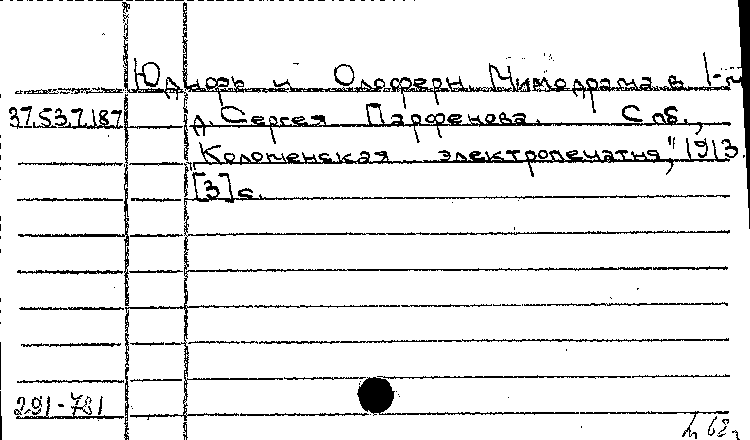 Юдифь и Олоферн. Мимодрама в 1-м
37.53.7.187 д. Сергея Парфенова. Спб.,
"Коломенская электропечатня," 1913.
[3] с.
291-781